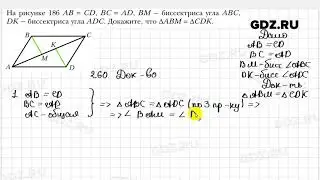 GDZ.RU
На рисунке 186 AB = CD, BC = AD, BM – биссектриса угла ABC,
DK – биссектриса угла ADC. Докажите, что ΔABM = ΔCDK.
B
C
K
M
A
D
260. Док-во
Дано
AB = CD
BC = AD
BM - бисс ∠ABC
DK - бисс ∠ADC
Док-ть
ΔABM = ΔCDK
1 AB = CD
BC = AD
AC - общая
=> ΔABC = ΔADC (по 3 пр-ку) =>
=> ∠BAM = ∠D